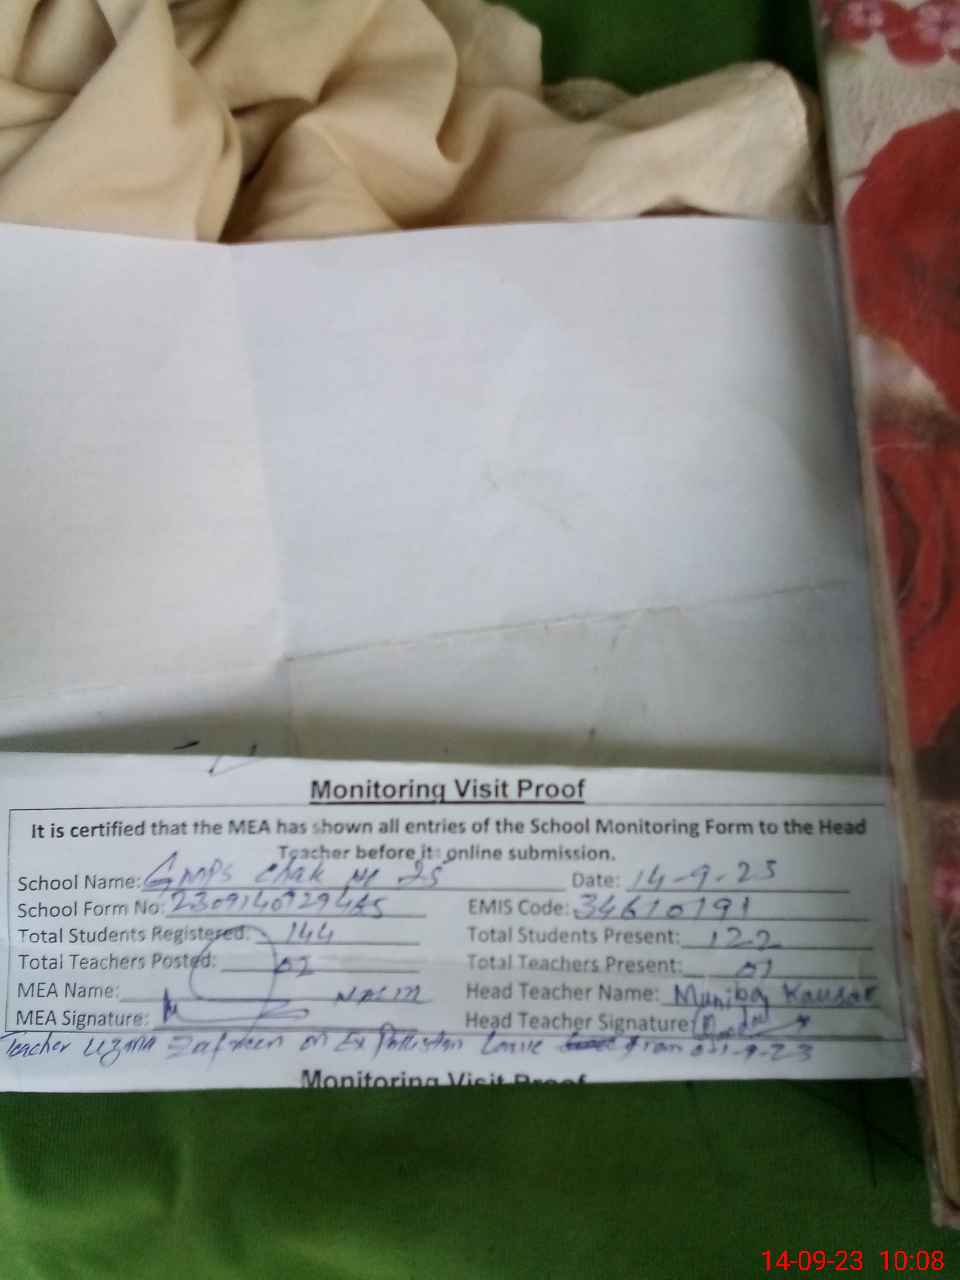 Monitoring Visit Proof
It is certified that the MEA has shown all entries of the School Monitoring Form to the Head
Teacher before its online submission.
School Name: GMPS Chak No 25 Date: 14-9-23
School Form No: EMIS Code: 34610191
Total Students Registered: 144 Total Students Present: 122
Total Teachers Posted: 02 Total Teachers Present: 01
MEA Name: Head Teacher Name: Muniba Kausar
MEA Signature: Head Teacher Signature:
Teacher Uzma on Ex Pakistan Leave from 9-23
Monitoring Visit Proof
14-09-23 10:08